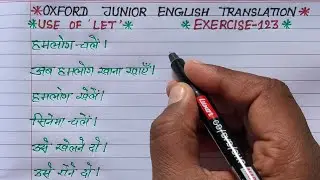 *OXFORD JUNIOR ENGLISH TRANSLATION
*USE OF 'LET' * EXERCISE-123
हमलोग चलें।
अब हमलोग खाना खाएँ।
हमलोग खेलें।
सिनेमा चलें।
उसे खेलने दो।
उसे सोने दो।